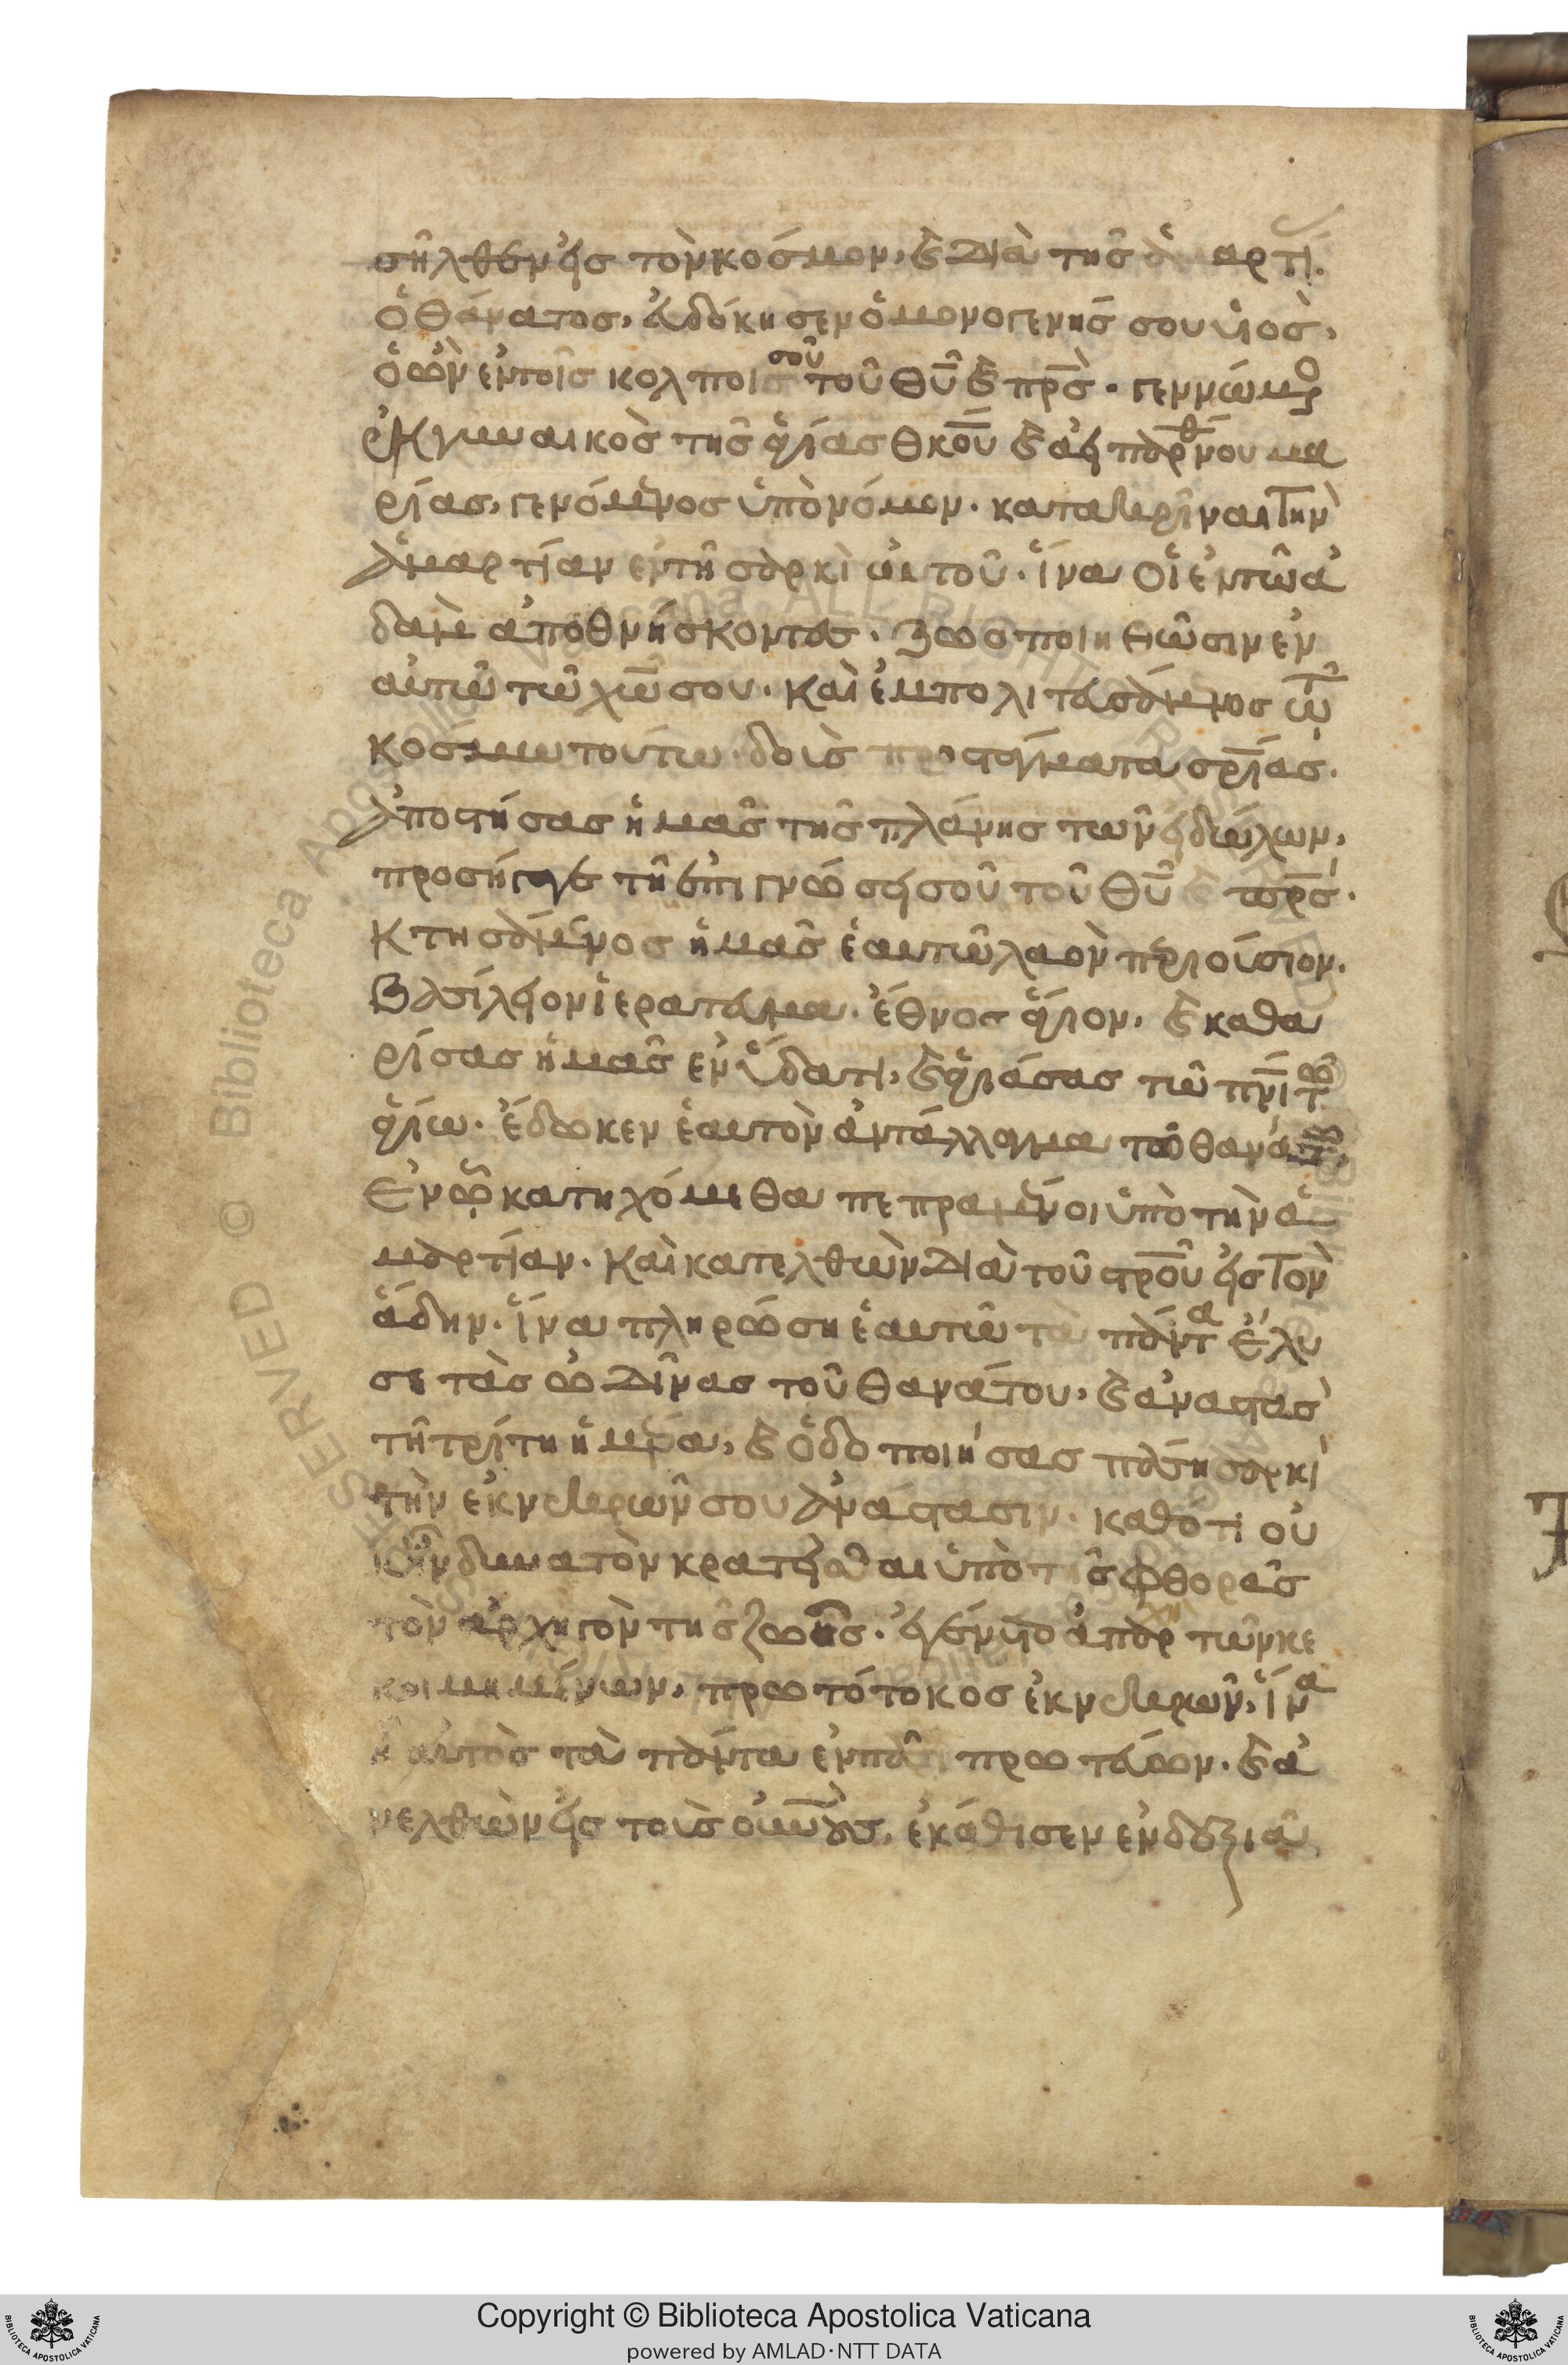 σῆλθεν εἰς τὸν κόσμον, καὶ διὰ τῆς ἁμαρτί.
ὁ θάνατος, εὐδόκησεν ὁ μονογενής σου υἱὸς,
ὁ ὢν ἐν τοῖς κόλποις σοῦ τοῦ θυ καὶ πρς. γεννώμενο
ἐκ γυναικὸς τῆς ἁγίας θκου καὶ ἀειπαρθένου μα
ρίας, γενόμενος ὑπὸ νόμον. κατακρῖναι τὴν
ἁμαρτίαν ἐν τῇ σαρκὶ αὐτοῦ. ἵνα οἱ ἐν τῷ ἀ
δαμ ἀποθνήσκοντες. ζωοποιηθῶσιν ἐν
αὐτῷ τῷ χω σου. καὶ ἐμπολιτευσάμενος τῷ
κόσμω τούτω. δοὺς προστάγματα σρίας.
ἀποστήσας ἡμᾶς τῆς πλάνης τῶν εἰδώλων,
προσήγαγε τῇ ἐπιγνώσει σοῦ τοῦ θυ καὶ πρς.
κτησάμενος ἡμᾶς ἑαυτῷ λαὸν περιούσιον.
βασίλειον ἱεράτευμα. ἔθνος ἅγιον. καὶ καθα
ρίσας ἡμᾶς ἐν ὕδατι, καὶ ἁγιάσας τῷ πνι τῷ
ἁγίω. ἔδωκεν ἑαυτὸν ἀντάλλαγμα τῷ θανάτω,
ἐν ᾧ κατηχόμεθα πεπραμένοι ὑπὸ τὴν ἁ
μαρτίαν. καὶ κατελθὼν διὰ τοῦ στρου εἰς τὸν
ἅδην. ἵνα πληρώση ἑαυτῷ τὰ πάντα ἔλυ
σε τὰς ὠδῖνας τοῦ θανάτου, καὶ ἀναστὰς
τῇ τρίτη ἡμέρα, καὶ ὁδοποιήσας πάση σαρκὶ
τὴν ἐκ νεκρῶν σου ἀνάστασιν. καθότι οὐ
κ ἦν δυνατὸν κρατεῖσθαι ὑπὸ τῆς φθορᾶς
τὸν ἀρχηγὸν τῆς ζωῆς. ἐγένετο ἀπαρχὴ τῶν κε
κοιμημένων, πρωτότοκος ἐκ νεκρῶν, ἵνα
ἦ αὐτὸς τὰ πάντα ἐν πᾶσι πρωτεύων. καὶ ἀ
νελθὼν εἰς τοὺς οὐνους, ἐκάθισεν ἐν δεξιᾷ
Copyright © Biblioteca Apostolica Vaticana
powered by AMLAD·NTT DATA